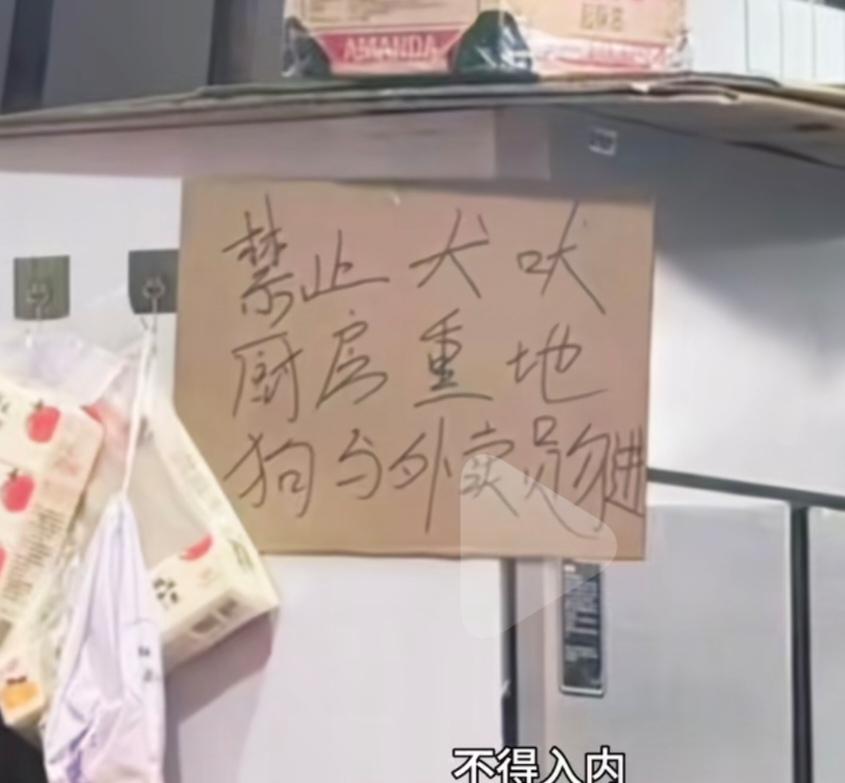 AMANDA
禁止犬吠
厨房重地
狗与外卖员勿进
不得入内